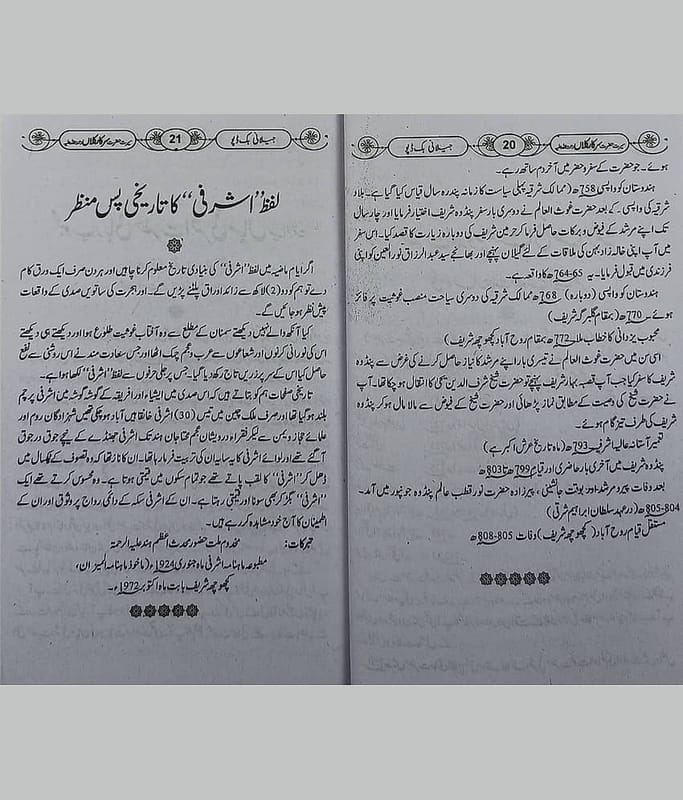 سیرت حضرت سرکار کلاں
20
جیلانی بک ڈپو
ہوئے۔ جو حضرت کے سفر و حضر میں آخر دم ساتھ رہے۔
ہندوستان کو واپسی 758ھ (ممالک شرقیہ پہلی سیاحت کا زمانہ پندرہ سال قیاس کیا گیا ہے۔ بلاد
شرقیہ کی واپسی کے بعد حضرت غوث العالم نے دوسری بار سفر پنڈوہ شریف اختیار فرمایا اور چار سال
تک اپنے مرشد کے فیوض و برکات حاصل فرما کر حرمین شریف کی دوبارہ زیارت کا قصد کیا۔ اس سفر
میں آپ اپنی خالہ زاد بہن کی ملاقات کے لئے گیلان پہنچے اور بھانجے سید عبد الرزاق نور العین کو اپنی
فرزندی میں قبول فرمایا۔ یہ 65-764ھ کا واقعہ ہے۔
ہندوستان کو واپسی (دوبارہ) 768ھ ممالک شرقیہ کی دوسری سیاحت منصب غوثیت پر فائز
ہوئے۔ 770ھ (بمقام گلبرگہ شریف)
محبوب یزدانی کا خطاب ملا۔ 772ھ (بمقام روح آباد کچھوچھہ شریف)
اسی سن میں حضرت غوث العالم نے تیسری بار اپنے مرشد کا نیاز حاصل کرنے کی غرض سے پنڈوہ
شریف کا سفر کیا جب آپ قصبہ بہار شریف پہنچے تو حضرت شیخ شرف الدین سہی کا انتقال ہو چکا تھا۔ آپ
نے حضرت شیخ کی وصیت کے مطابق نماز پڑھائی اور حضرت شیخ کے فیوض سے مالا مال ہو کر پنڈوہ
شریف کی طرف تیز گام ہوئے۔
تعمیر آستانہ عالیہ اشرفیہ 793ھ (ماہ تاریخ عرش اکبر ہے)
پنڈوہ شریف میں آخری بار حاضری اور قیام 799ھ تا 803ھ
بعد وفات پیر و مرشد اور بوقت جانشینی، پیرزادہ حضرت نور قطب عالم پنڈوہ جونپور میں آمد۔
804-805ھ (در عہد سلطان ابراہیم شرقی)
مستقل قیام روح آباد (کچھوچھہ شریف) وفات 805-808ھ
سیرت حضرت سرکار کلاں
21
جیلانی بک ڈپو
لفظ "اشرفی" کا تاریخی پس منظر
اگر ایام ماضیہ میں لفظ "اشرفی" کی بنیادی تاریخ معلوم کرنا چاہیں اور ہر دن صرف ایک ورق کام
دے تو ہم کو دو (2) لاکھ سے زائد اوراق پلٹنے پڑیں گے۔ اور ہجرت کی ساتویں صدی کے واقعات
پیش نظر ہو جائیں گے۔
کیا آنکھ والے نہیں دیکھتے سمنان کے مطلع سے وہ آفتاب غوثیت طلوع ہوا اور دیکھتے ہی دیکھتے
اس کی نورانی کرنوں اور شعاعوں سے عرب و عجم چمک اٹھا اور جس سعادت مند نے اس روشنی سے نفع
حاصل کیا اس کے سر پر زریں تاج رکھ دیا گیا۔ جس پر جلی حرفوں سے لفظ "اشرفی" لکھا ہوا ہے۔
تاریخی صفحات ہم کو بتاتے ہیں کہ اس صدی میں ایشیاء اور افریقہ کے گوشہ گوشہ میں اشرفی پرچم
بلند ہو گیا تھا اور صرف ملک چین میں تیس (30) اشرفی خانقاہیں آباد ہو چکی تھیں شہزادگان روم اور
علمائے حجاز و یمن سے لیکر فقراء و درویشان عجم تمام جان ہند تک اشرفی جھنڈے کے نیچے جوق در جوق
آ گئے تھے اور لوائے اشرفی کا یہ سایہ ان کی تربیت فرما رہا تھا۔ ان کا ناز تھا کہ وہ تصوف کے ٹکسال میں
ڈھل کر "اشرفی" کا لقب پاتے تھے جو تمام سکوں میں قیمتی ہوتا ہے۔ وہ محسوس کرتے تھے ایک
"اشرفی" بگڑ کر بھی سونا اور قیمتی رہتا ہے۔ ان کے اشرفی سکہ کے دائمی رواج پر وثوق اور ان کے
اطمینان کا آج خود مشاہدہ کر رہے ہیں۔
تبرکات: مخدوم ملت حضور محدث اعظم ہند علیہ الرحمۃ
مطبوعہ ماہنامہ اشرفی ماہ جنوری 1924ء (ماخوذ ماہنامہ المیزان،
کچھوچھہ شریف بابت ماہ اکتوبر 1972ء۔